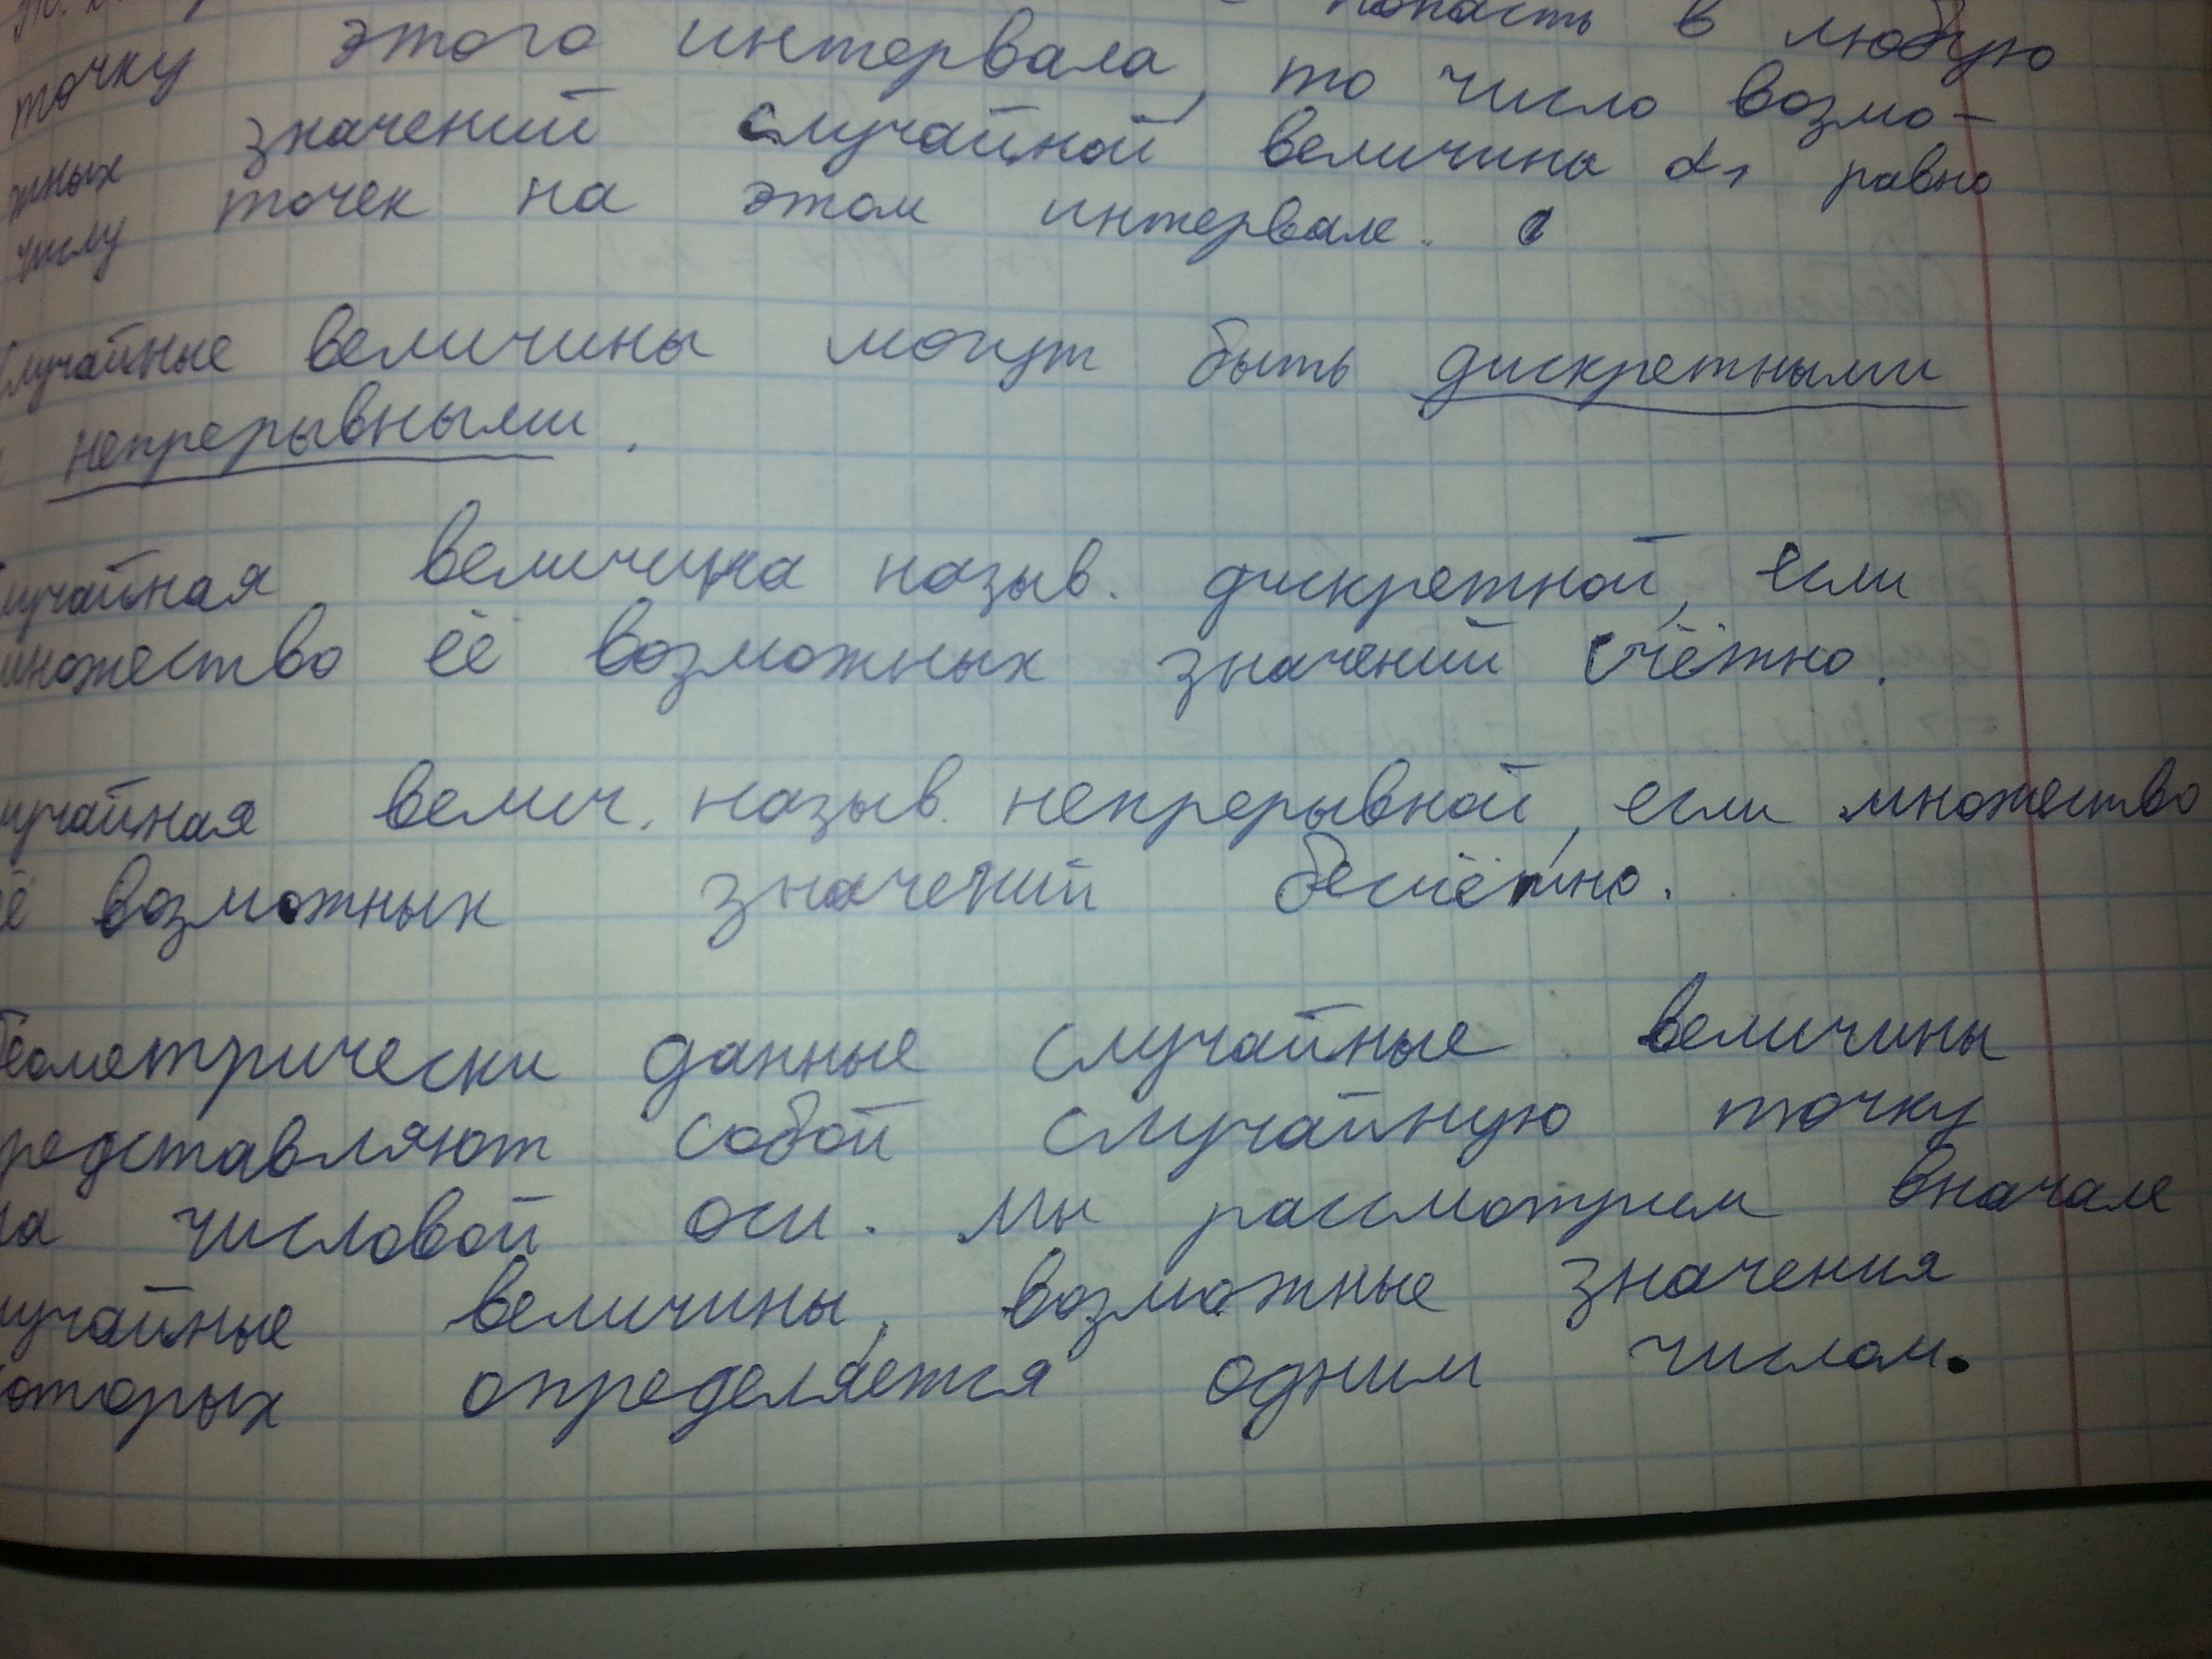 попасть в любую
точку этого интервала, то число возмо-
жных значений случайной величины α₁ равно
числу точек на этом интервале.
Случайные величины могут быть дискретными
непрерывными.
лучайная величина назыв. дискретной, если
множество её возможных значений счётно.
лучайная велич. назыв. непрерывной, если множество
её возможных значений бесчётно.
Геометрически данные случайные величины
редставляют собой случайную точку
на числовой оси. Мы рассмотрим вначале
лучайные величины, возможные значения
которых определяется одним числом.